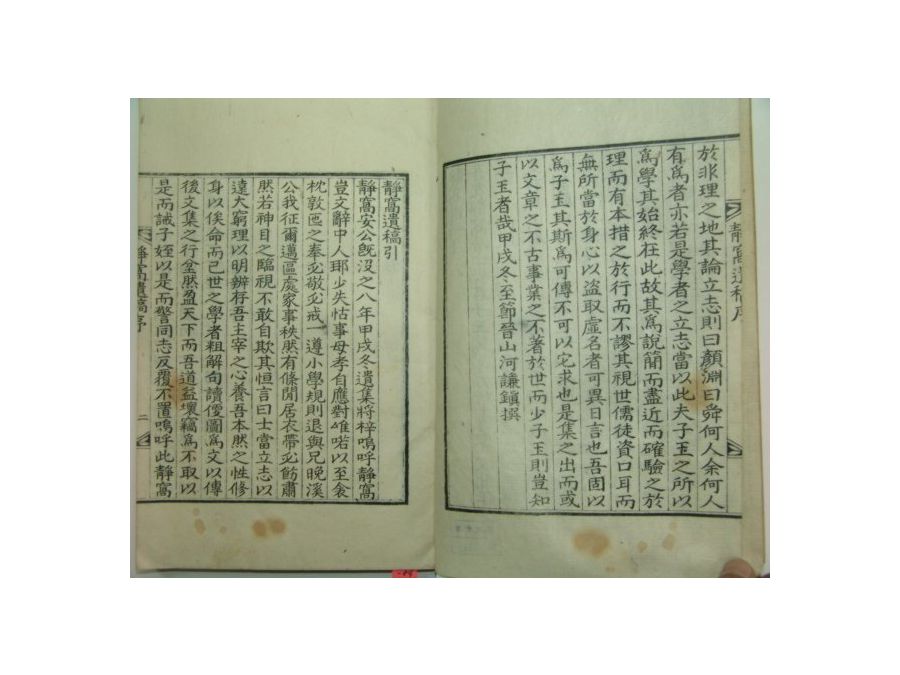 靜窩遺稿序
於非理之地其論立志則曰顏淵曰舜何人余何人
有爲者亦若是學者之立志當以此夫子玉之所以
爲學其始終在此故其爲說簡而盡近而確驗之於
理而有本措之於行而不謬其視世儒徒資口耳而
無所當於身心以盜取虛名者可異日言也吾固以
爲子玉其斯爲可傳不可以它求也是集之出而或
以文章之不古事業之不著於世而少子玉則豈知
子玉者哉甲戌冬至節晉山河謙鎭撰
靜窩遺稿引
靜窩安公旣沒之八年甲戌冬遺集將梓嗚呼靜窩
豈文辭中人耶少失怙事母孝自應對雄喏以至衾
枕敦匜之奉必敬必戒一遵小學規則退與兄晩溪
公我征爾邁區處家事秩然有條閒居衣帶必飭肅
然若神目之臨視不敢自欺其恒言曰士當立志以
遠大窮理以明辨存吾主宰之心養吾本然之性修
身以俟命而已世之學者粗解句讀便圖爲文以傳
後文集之行坌然盈天下而吾道益壞竊爲不取以
是而誡子姪以是而警同志反覆不置嗚呼此靜窩
靜窩遺稿序
二